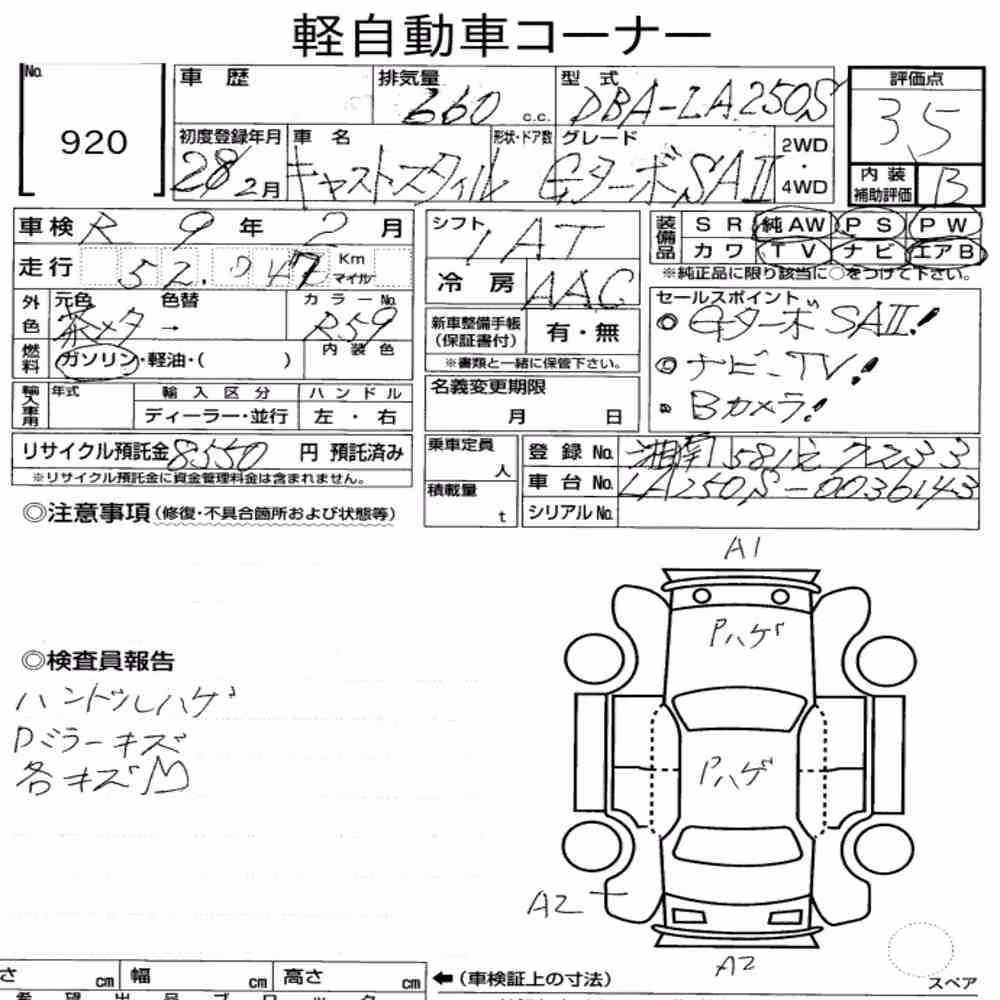 軽自動車コーナー
No.
920
車歴
排気量
660 c.c.
型式
DBA-LA250S
評価点
3.5
初度登録年月
28 2月
車名
キャストスタイル
形状・ドア数 グレード
GターボSAII
2WD
・
4WD
内装
補助評価
B
車検 R 9年 2月
走行 52.047 Km
マイル
外色
元色 色替
茶メタ →
カラーNo.
R59
燃料
ガソリン・軽油・( )
内装色
輸入車用
年式
輸入区分
ディーラー・並行
ハンドル
左・右
リサイクル預託金 8550 円 預託済み
※リサイクル預託金に資金管理料金は含まれません。
シフト
IAT
冷房
AAC
新車整備手帳
(保証書付)
有・無
※書類と一緒に保管下さい。
名義変更期限
月 日
乗車定員
人
積載量
t
装備品
SR 純AW PS PW
カワ TV ナビ エアB
※純正品に限り該当に○をつけて下さい。
セールスポイント
◎ GターボSAII!
◎ ナビ-TV!
Bカメラ!
登録No. 湘南 581 7233
車台No. LA250S-0036143
シリアルNo.
◎注意事項(修復・不具合箇所および状態等)
◎検査員報告
ハンドルハゲ
Dミラーキズ
各キズM
A1
Pハゲ
Pハゲ
A2
A2
スペア
さ cm 幅 cm 高さ cm
←(車検証上の寸法)
希望出品ブロック